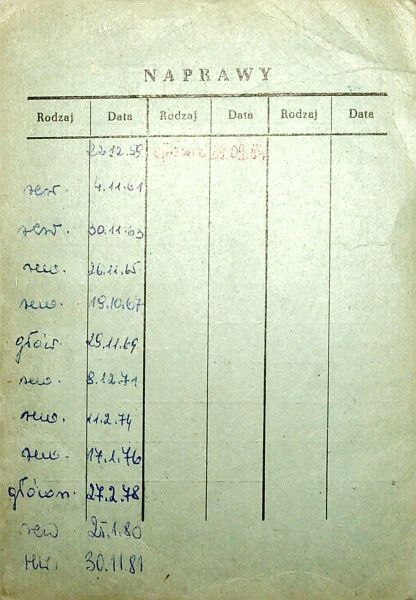 NAPRAWY
Rodzaj Data Rodzaj Data Rodzaj Data
22.12.59
rew. 4.11.61
rew. 30.11.63
rew. 26.11.65
rew. 19.10.67
głów. 29.11.69
rew. 8.12.71
rew. 11.2.74
rew. 17.1.76
główn. 27.2.78
rew 25.1.80
rew. 30.11.81